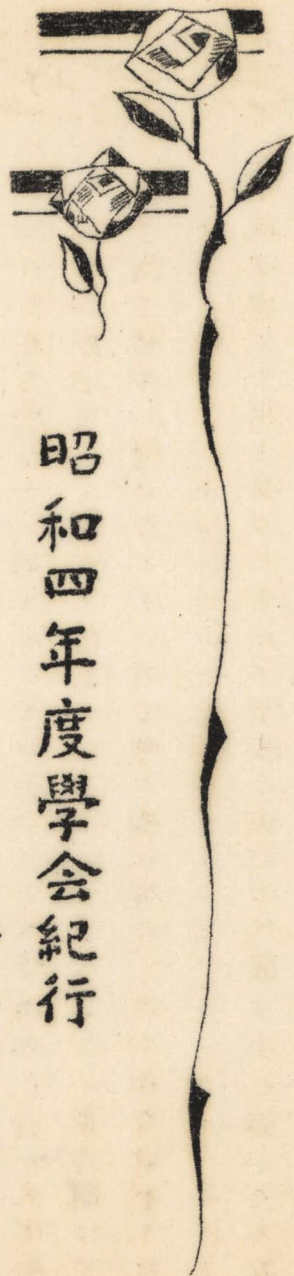 昭和四年度學会紀行